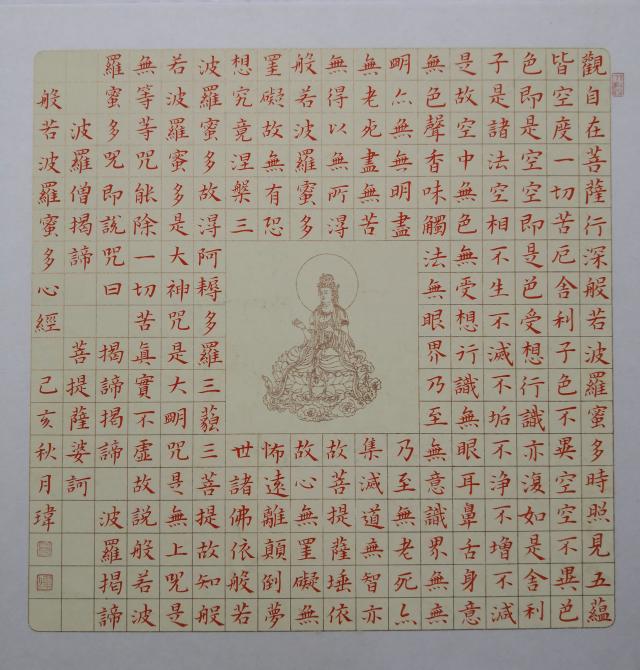 觀自在菩薩行深般若波羅蜜多時照見五蘊
皆空度一切苦厄舍利子色不異空空不異色
色即是空空即是色受想行識亦復如是舍利
子是諸法空相不生不滅不垢不淨不增不減
是故空中無色無受想行識無眼耳鼻舌身意
無色聲香味觸法無眼界乃至無意識界無無
明亦無無明盡乃至無老死亦
無老死盡無苦集滅道無智亦
無得以無所得故菩提薩埵依
般若波羅蜜多故心無罣礙無
罣礙故無有恐怖遠離顛倒夢
想究竟涅槃三世諸佛依般若
波羅蜜多故得阿耨多羅三藐三菩提故知般
若波羅蜜多是大神咒是大明咒是無上咒是
無等等咒能除一切苦真實不虛故說般若波
羅蜜多咒即說咒曰 揭諦揭諦 波羅揭諦
波羅僧揭諦 菩提薩婆訶
般若波羅蜜多心經 己亥秋月瑋